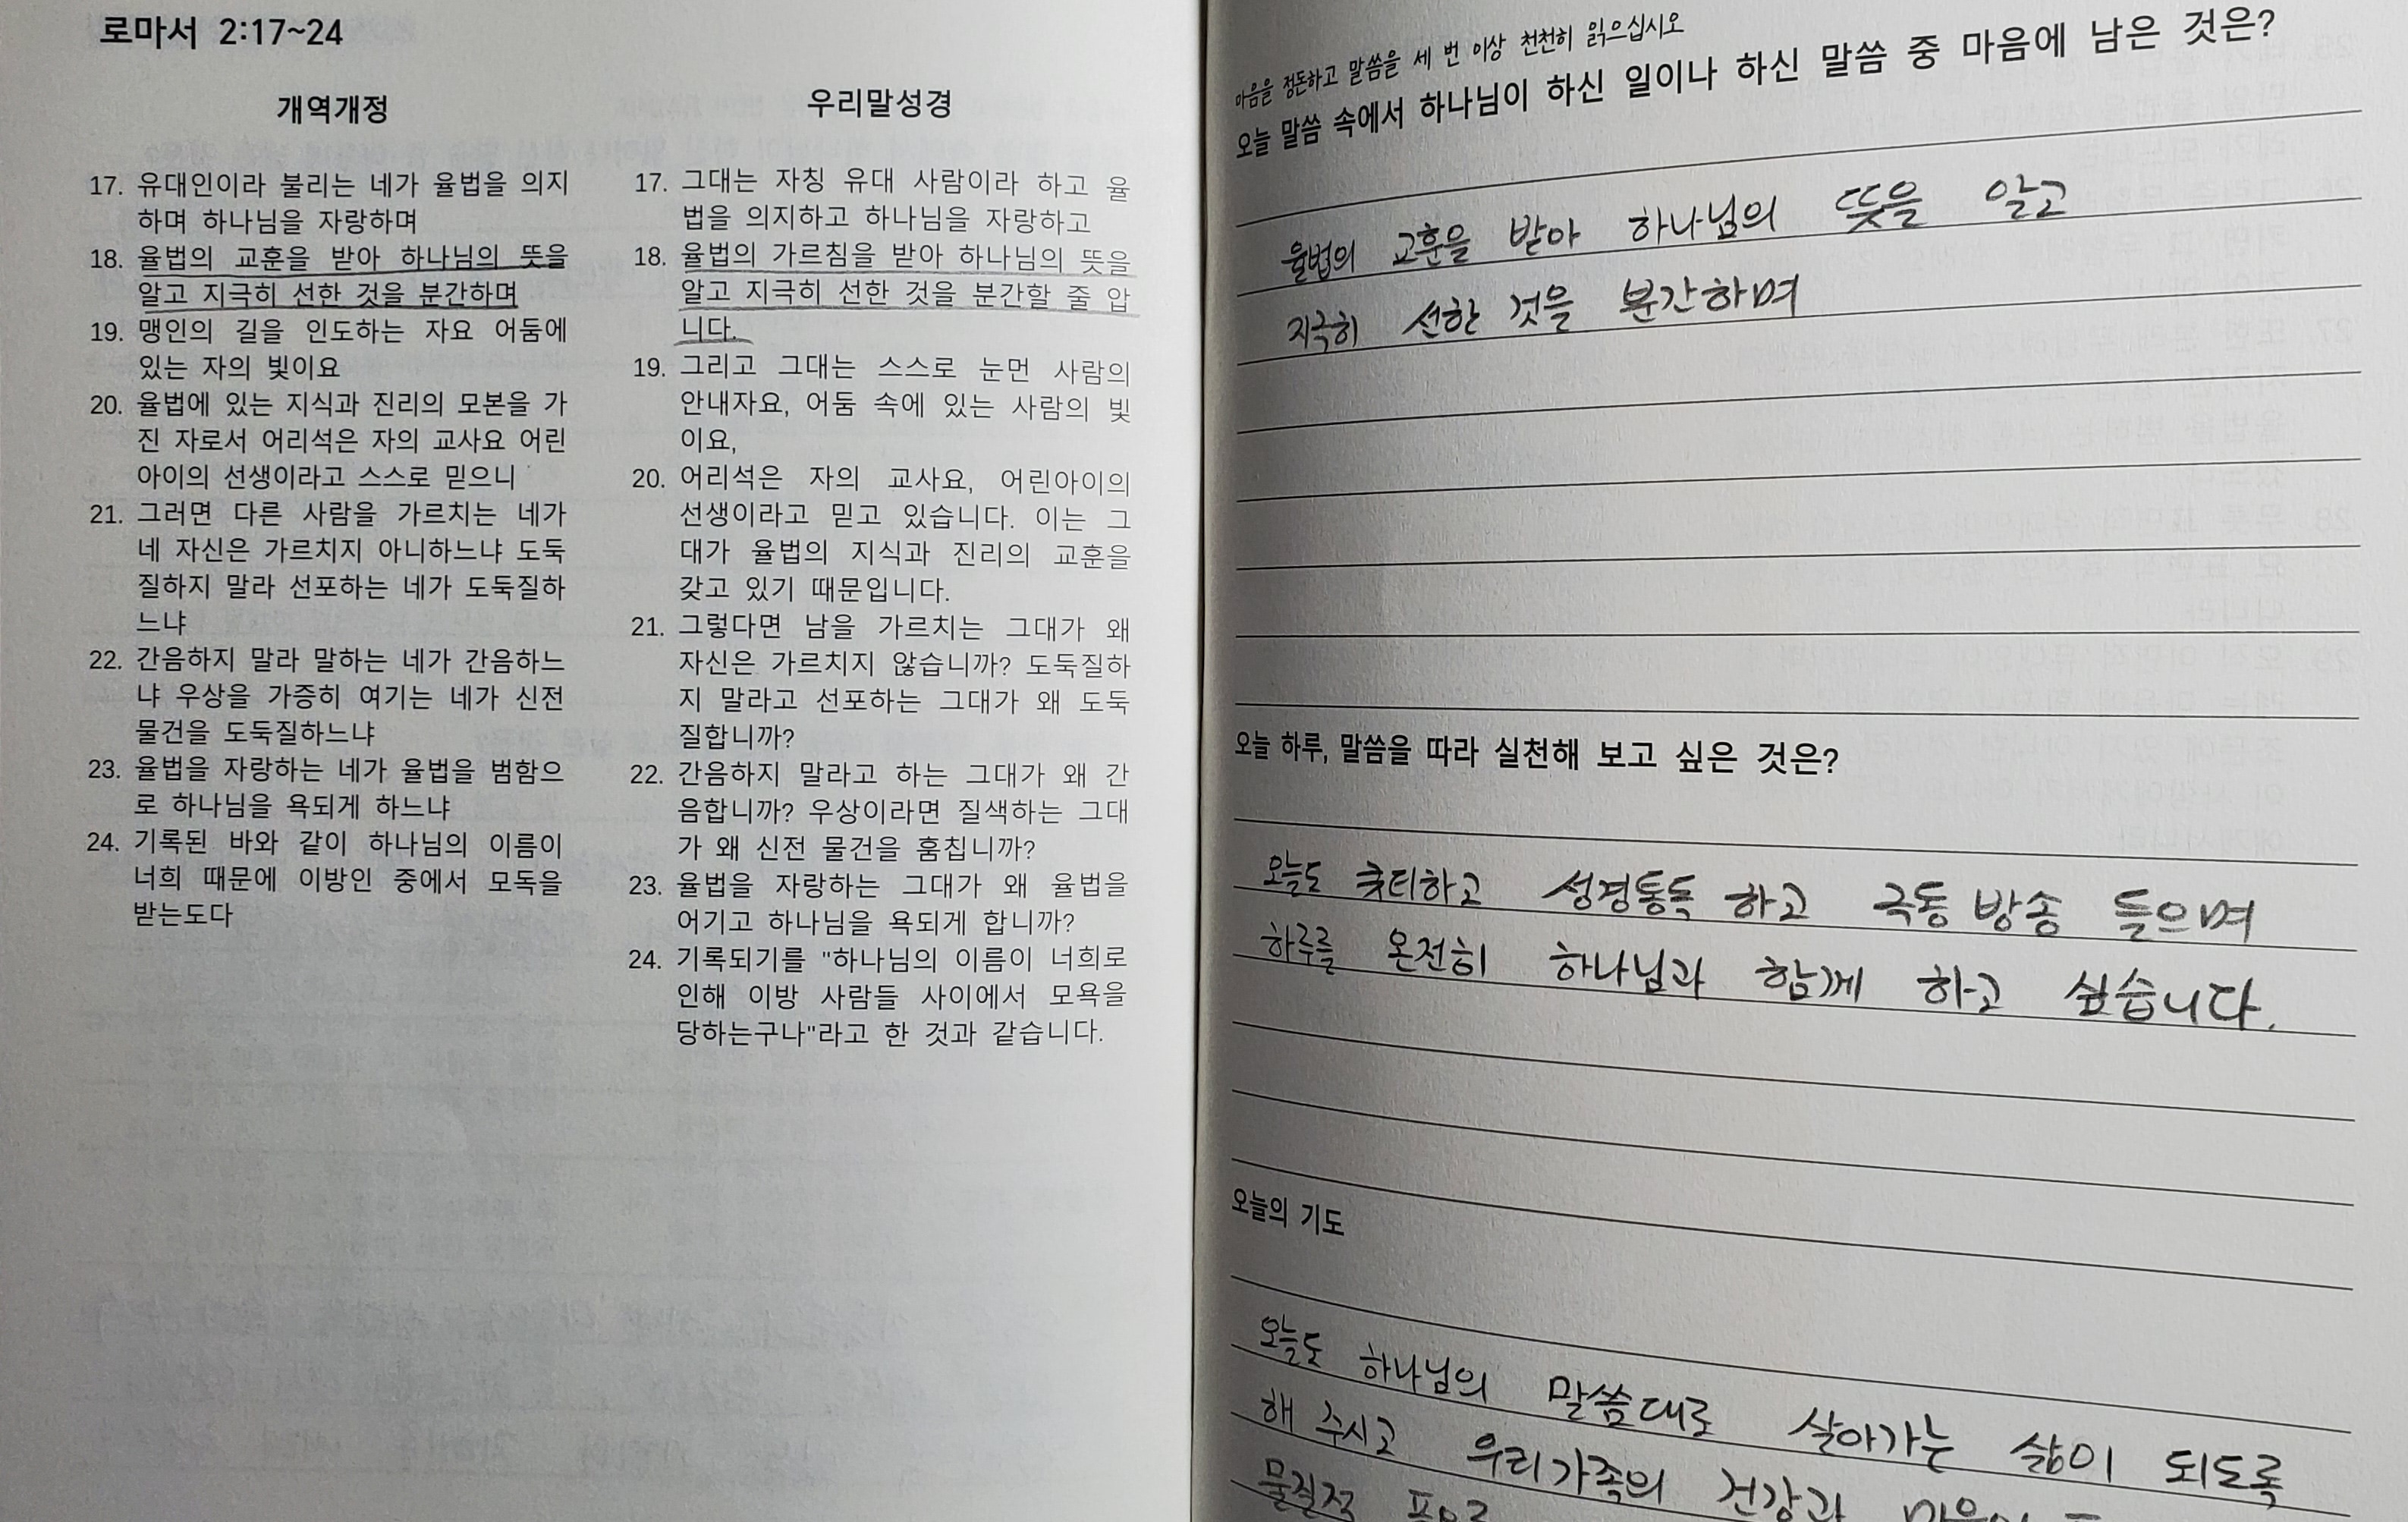 로마서 2:17~24
개역개정
17. 유대인이라 불리는 네가 율법을 의지
하며 하나님을 자랑하며
18. 율법의 교훈을 받아 하나님의 뜻을
알고 지극히 선한 것을 분간하며
19. 맹인의 길을 인도하는 자요 어둠에
있는 자의 빛이요
20. 율법에 있는 지식과 진리의 모본을 가
진 자로서 어리석은 자의 교사요 어린
아이의 선생이라고 스스로 믿으니
21. 그러면 다른 사람을 가르치는 네가
네 자신은 가르치지 아니하느냐 도둑
질하지 말라 선포하는 네가 도둑질하
느냐
22. 간음하지 말라 말하는 네가 간음하느
냐 우상을 가증히 여기는 네가 신전
물건을 도둑질하느냐
23. 율법을 자랑하는 네가 율법을 범함으
로 하나님을 욕되게 하느냐
24. 기록된 바와 같이 하나님의 이름이
너희 때문에 이방인 중에서 모독을
받는도다
우리말성경
17. 그대는 자칭 유대 사람이라 하고 율
법을 의지하고 하나님을 자랑하고
18. 율법의 가르침을 받아 하나님의 뜻을
알고 지극히 선한 것을 분간할 줄 압
니다.
19. 그리고 그대는 스스로 눈먼 사람의
안내자요, 어둠 속에 있는 사람의 빛
이요,
20. 어리석은 자의 교사요, 어린아이의
선생이라고 믿고 있습니다. 이는 그
대가 율법의 지식과 진리의 교훈을
갖고 있기 때문입니다.
21. 그렇다면 남을 가르치는 그대가 왜
자신은 가르치지 않습니까? 도둑질하
지 말라고 선포하는 그대가 왜 도둑
질합니까?
22. 간음하지 말라고 하는 그대가 왜 간
음합니까? 우상이라면 질색하는 그대
가 왜 신전 물건을 훔칩니까?
23. 율법을 자랑하는 그대가 왜 율법을
어기고 하나님을 욕되게 합니까?
24. 기록되기를 "하나님의 이름이 너희로
인해 이방 사람들 사이에서 모욕을
당하는구나"라고 한 것과 같습니다.
마음을 정돈하고 말씀을 세 번 이상 천천히 읽으십시오
오늘 말씀 속에서 하나님이 하신 일이나 하신 말씀 중 마음에 남은 것은?
율법의 교훈을 받아 하나님의 뜻을 알고
지극히 선한 것을 분간하며
오늘 하루, 말씀을 따라 실천해 보고 싶은 것은?
오늘도 큐티하고 성경통독 하고 극동방송 들으며
하루를 온전히 하나님과 함께 하고 싶습니다.
오늘의 기도
오늘도 하나님의 말씀대로 살아가는 삶이 되도록
해 주시고 우리가족의 건강과
물질적